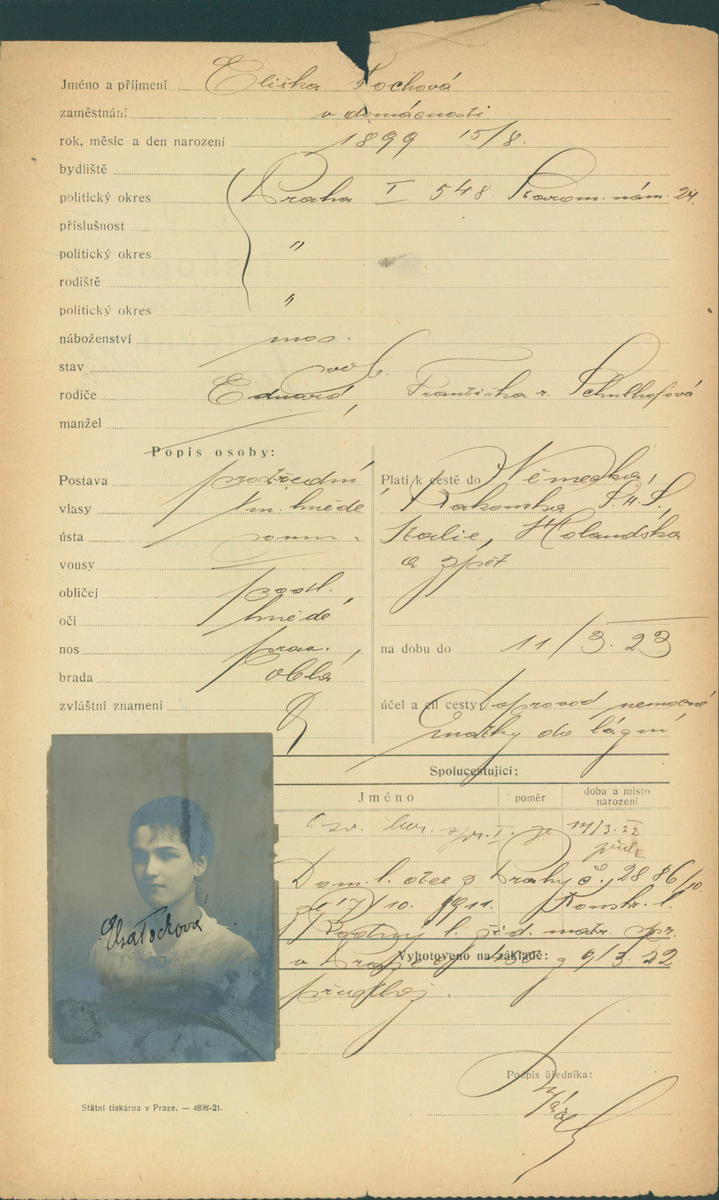 Jméno a příjmení Eliška Pochová
zaměstnání v domácnosti
rok, měsíc a den narození 1899 15/8.
bydliště
politický okres Praha I 548 Starom. nám. 24.
příslušnost
politický okres "
rodiště
politický okres "
náboženství mos.
stav svob.
rodiče Eduard, Františka r. Schulhofová
manžel
Popis osoby:
Postava prostřední
vlasy tm. hnědé
ústa soum.
vousy
obličej podl.
oči hnědé
nos prav.
brada oblá
zvláštní znamení
Platí k cestě do Německa,
Rakouska, S.H.S.,
Italie, Holandska
a zpět
na dobu do 11/3.23
účel a cíl cesty Doprovod nemocné
matky do lázní
Spolucestující:
Jméno poměr doba a místo narození
14/3.22
Dom. l. obce z Prahy č. 28 86/10
ze 17/10. 1911.
Rodný l. žid. matr.
v Praze z 9/3.22
Vyhotoveno na základě:
Podpis úředníka:
Elsa Pochová
Státní tiskárna v Praze. — 4876-21.